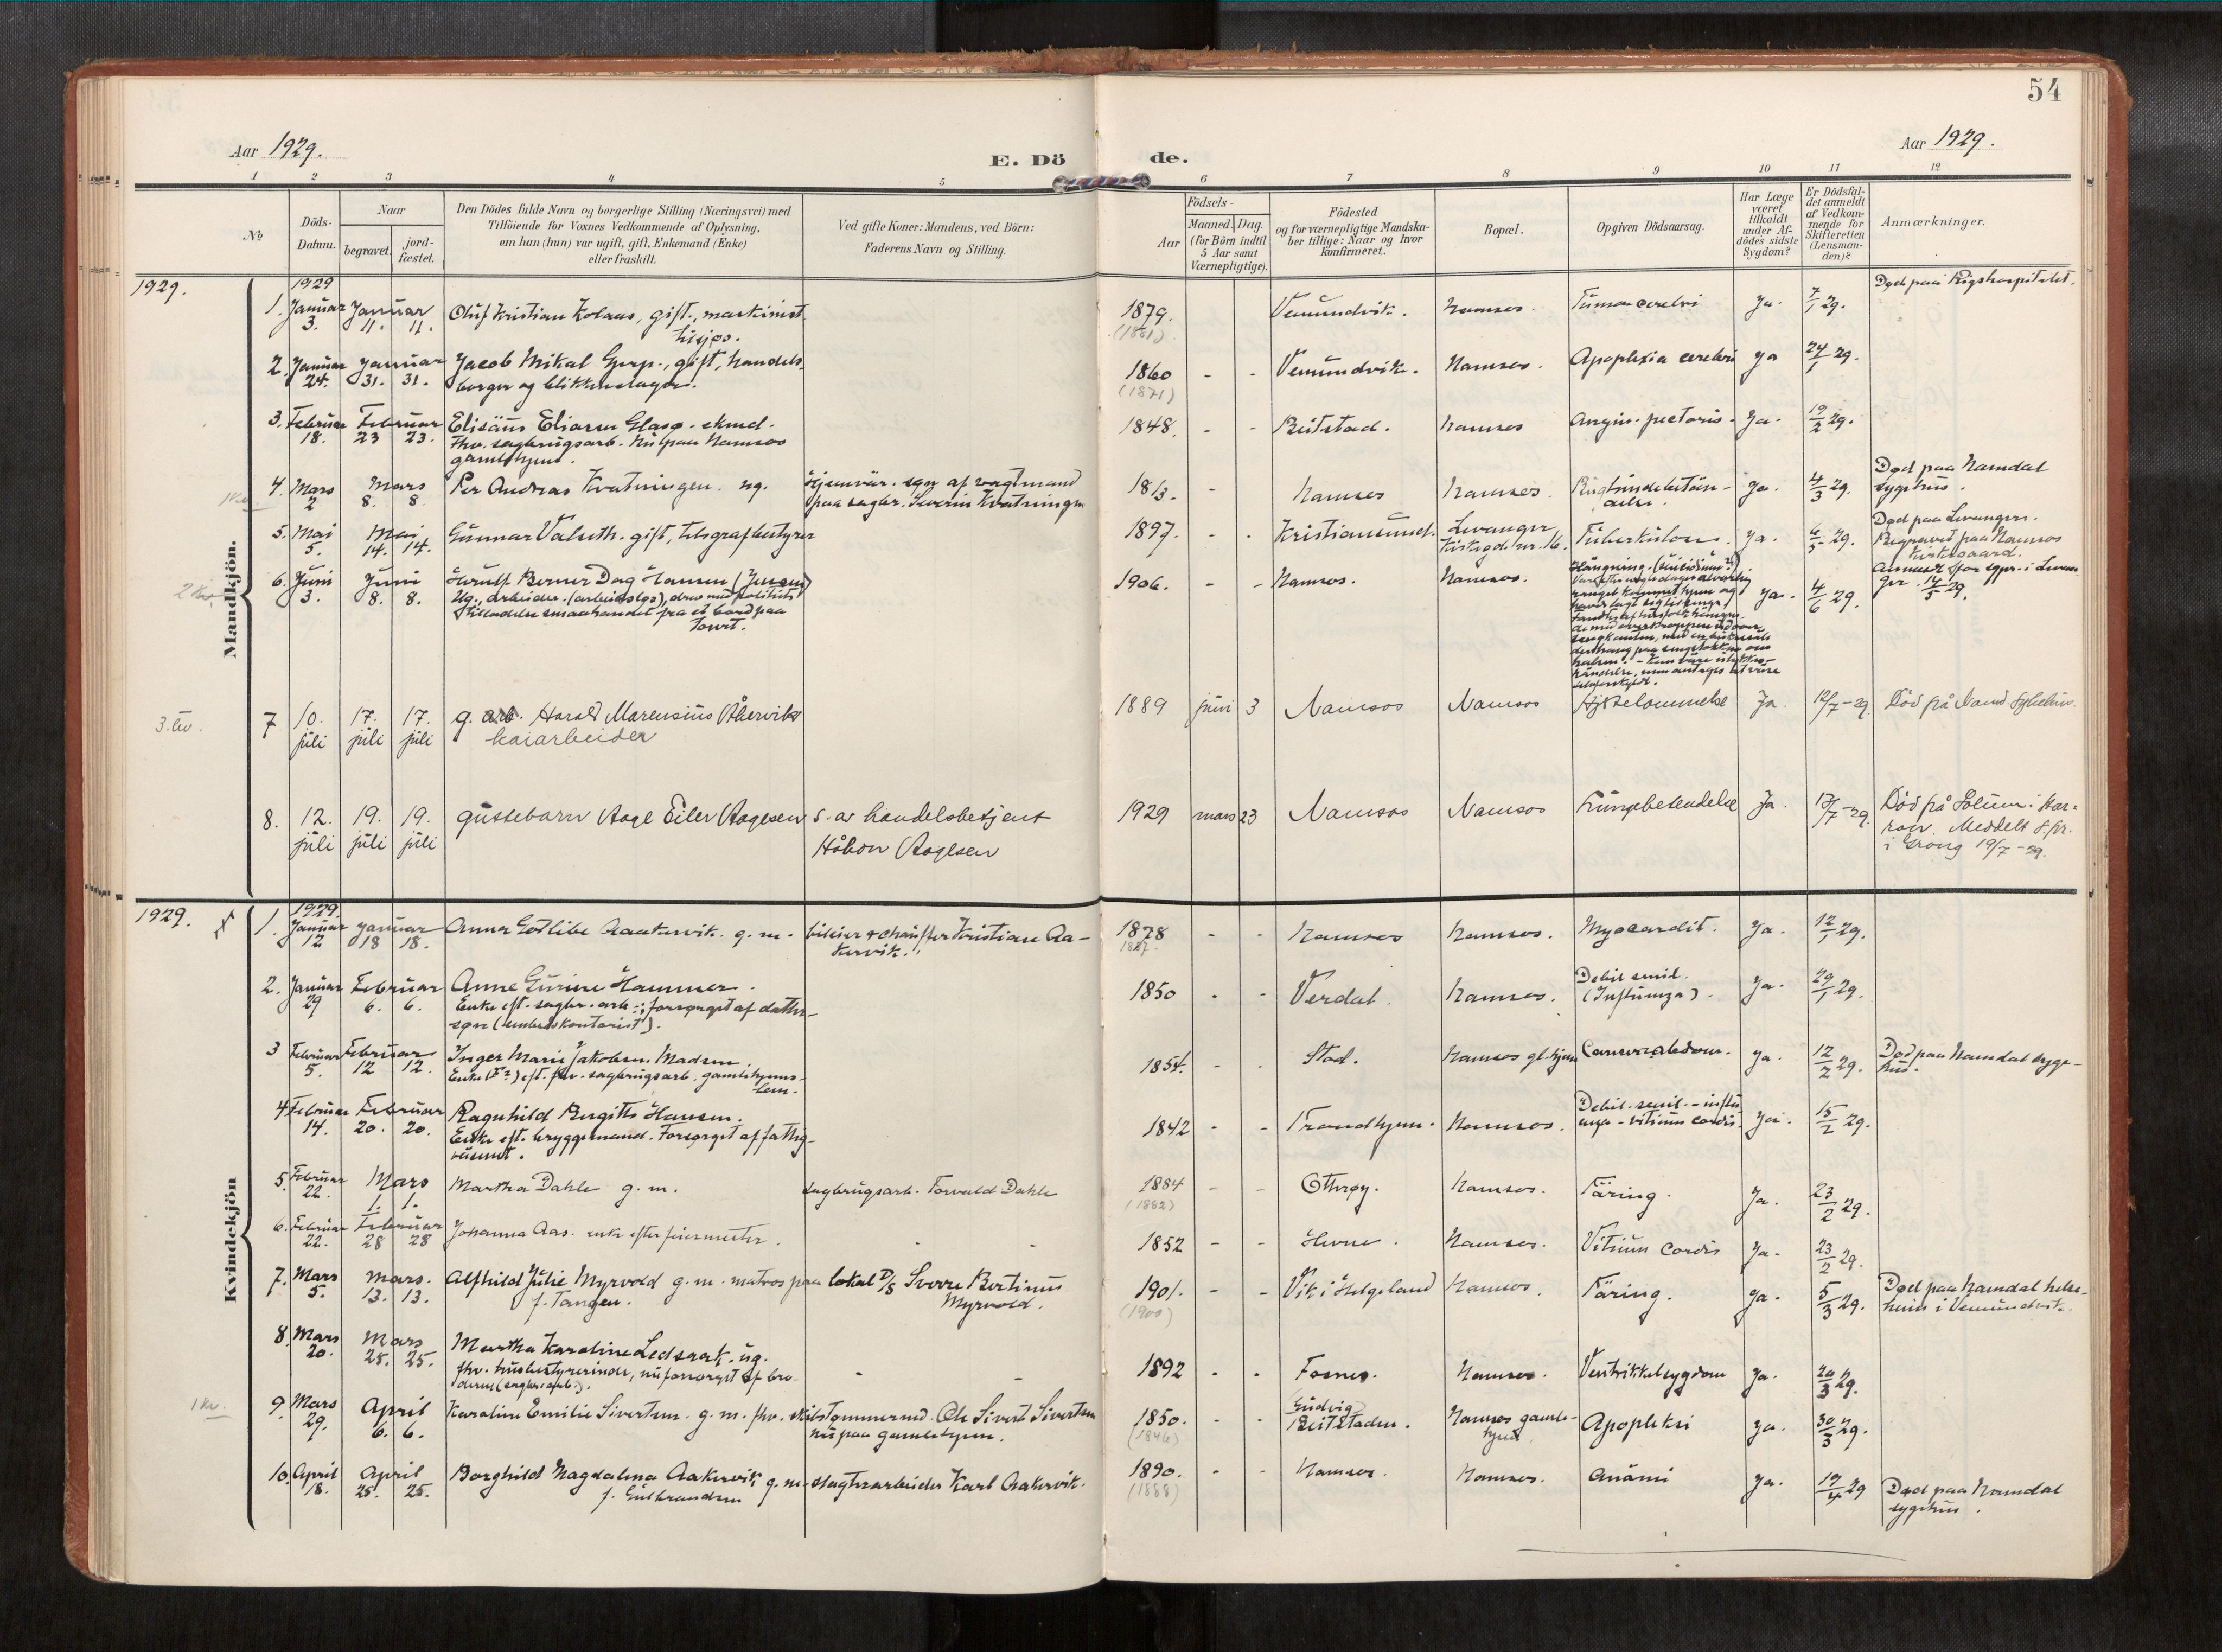 54
Aar 1929.
E. Döde.
Aar 1929.
1 2 3 4 5 6 7 8 9 10 11 12
No
Döds-
Datum.
Naar
begravet.
jord-
fæstet.
Den Dödes fulde Navn og borgerlige Stilling (Næringsvei) med
Tilföiende for Voxnes Vedkommende af Oplysning,
om han (hun) var ugift, gift, Enkemand (Enke)
eller fraskilt.
Ved gifte Koner: Mandens, ved Börn:
Faderens Navn og Stilling.
Födsels-
Aar
Maaned. Dag.
(for Börn indtil
5 Aar samt
Værnepligtige).
Födested
og for værnepligtige Mandska-
ber tillige: Naar og hvor
konfirmeret.
Bopæl.
Opgiven Dödsaarsag.
Har Læge
været
tilkaldt
under Af-
dödes sidste
Sygdom?
Er Dödsfal-
det anmeldt
af Vedkom-
mende for
Skifteretten
(Lensman-
den)?
Anmærkninger.
Mandkjön.
1929.
1929
1. Januar 3. Januar 11. 11. Oluf Kristian Kolaas, gift, maskinist 1879. Vemundvik. Namsos. Tumor cerebri Ja. 7/1 29. Død paa Rigshospitalet.
2. Januar 24. Januar 31. 31. Jacob Mikal gift, handels-
borger og blikkenslager. 1860 - - Vemundvik. Namsos. Apoplexia cerebri Ja 24/1 29.
(1871)
3. Februar 18. Februar 23 23. Elisäus Eliasen Glasø. ekmd.
fhv. sagbrugsarb. nu paa Namsos
gamlehjem. 1848. - - Beitstad. Namsos Angin. pectoris. Ja. 19/2 29.
1 kv.
4. Mars 2 Mars 8. 8. Per Andreas Kvatningen. ug. søn af vagtmand
paa sagbr. Severin Kvatningen - Namsos Namsos. Ja. 4/3 29. Død paa Namdal
sygehus.
5. Mai 5. Mai 14. 14. Gunnar Valseth. gift, telegrafbestyrer 1897. - - Kristiansund. Levanger,
Kirkegd. nr. 16. Tuberkulose. Ja. 6/5 29. Død paa Levanger.
Begravet paa Namsos
kirkegaard.
Anmeldt for sgpr. i Levan-
ger. 14/5 29.
2 kv.
6. Juni 3. Juni 8. 8. Berner Dag Hansen (Jensen)
Ug., arbeider. (arbeidsløs), drev med politiets
tilladelse smaahandel fra et bord paa
torvet. 1906. - - Namsos. Namsos. Hängning. (suicidium?) Ja. 4/6 29.
3. kv.
7 10. juli 17. juli 17. juli g. arb. Harald Marensius Åkervik
kaiarbeider 1889 juni 3 Namsos Namsos Hjertelammelse Ja. 12/7-29 Död på Namd. sykehus.
8. 12. juli 19. juli 19. juli guttebarn Aage Eiler Aagesen s. av handelsbetjent
Håkon Aagesen 1929 mars 23 Namsos Namsos Lungebetendelse Ja. 13/7-29. Död på Solum i Har-
ran. Meddelt s.pr.
i Grong 19/7-29.
Kvindekjön
1929.
1929.
1. Januar 12 Januar 18 18. Anna Gotlibe Aaakervik. g. m. bileier & chauffør Kristian Aa-
kervik. 1878 - - Namsos Namsos. Myocardit. Ja. 12/1 29.
1887.
2. Januar 29 Februar 6. 6. Anne Gurine Hammer.
Enke eft. sagbr. arb.; forsørget af datter-
søn (embedskontorist). 1850 - - Verdal. Namsos. Debil. senil.
(Influenza). Ja. 29/1 29.
3 Februar 5. Februar 12 12. Inger Marie Jakobsen Madsen
Enke (F?) eft. fhv. sagbrugsarb. gamlehjems-
lem. 1854. - - Stod. Namsos gl. hjem Ja. 12/2 29. Død paa Namdal syge-
hus.
4 Februar 14. Februar 20. 20. Ragnhild Birgitte Hansen.
Enke eft. bryggemand. Forsørget af fattig-
væsenet. 1842 - - Trondhjem. Namsos. Debil. senil. - influ-
enza - vitium cordis. Ja. 15/2 29.
5. Februar 22. Mars 1. 1. Martha Dahle g. m. sagbrugsarb. Torvald Dahle 1884 - - Otterøy. Namsos. Täring. Ja. 23/2 29.
(1882)
6. Februar 22. Februar 28 28 Johanna Aas. enke efter feiermester. 1852 - - Hevne. Namsos. Vitium cordis Ja. 23/2 29.
7. Mars 5. Mars. 13. 13. Alfhild Julie Myrvold g. m. matros paa lokal D/S Sverre Bertinus
f. Tangen. Myrvold. 1901. - - Vik i Helgeland Namsos. Täring. Ja. 5/3 29. Død paa Namdal helse-
heim i Vemundvik.
(1900)
8. Mars 20. Mars 25. 25. Martha Karoline Ledsaak. ug.
fhv. husbestyrerinde, nu forsørget af bro-
deren (sagbr. arb.). 1892 - - Fosnes. Namsos. Ventrikkelsygdom Ja. 20/3 29.
1 kv.
9. Mars 29. April 6. 6. Karoline Emilie Sivertsen. g. m. fhv. skibstømmermd. Ole Sivert Sivertsen
nu paa gamlehjem. 1850. - - Beitstaden. Namsos gamle-
hjem Apopleksi Ja. 30/3 29.
(1846)
10. April 18. April 25. 25. Borghild Magdalena Aakervik g. m. slagteraarbeider Karl Aakervik.
f. Gulbrandsen 1890. - - Namsos. Namsos. Anämi Ja. 19/4 29 Død paa Namdal
sygehus.
(1888)